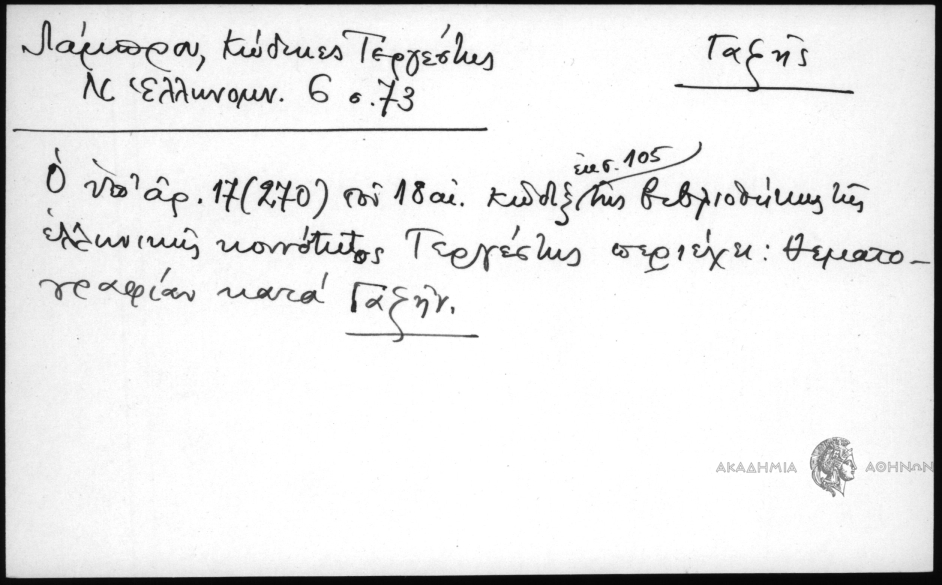 Λάμπρου, Κώδικες Τεργέστης
Ν Ἑλληνομν. 6 σ. 73
Γαζῆς
ἐκ σ. 105
Ὁ ὑπ' ἀρ. 17 (270) τοῦ 18 αἰ. κῶδιξ τῆς βιβλιοθήκης τῆς
ἑλληνικῆς κοινότητος Τεργέστης περιέχει: θεματο-
γραφίαν κατά Γαζῆν.
ΑΚΑΔΗΜΙΑ ΑΘΗΝΩΝ